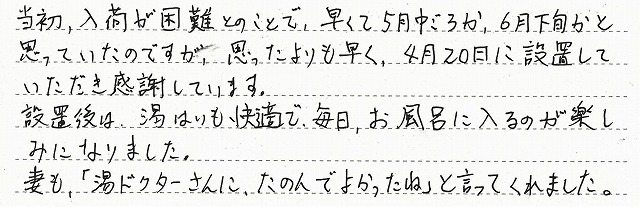 当初、入荷が困難とのことで、早くて5月中ごろか、6月下旬かと
思っていたのですが、思ったよりも早く、4月20日に設置して
いただき感謝しています。
設置後は、湯はりも快適で、毎日、お風呂に入るのが楽し
みになりました。
妻も、「湯ドクターさんに、たのんでよかったね」と言ってくれました。